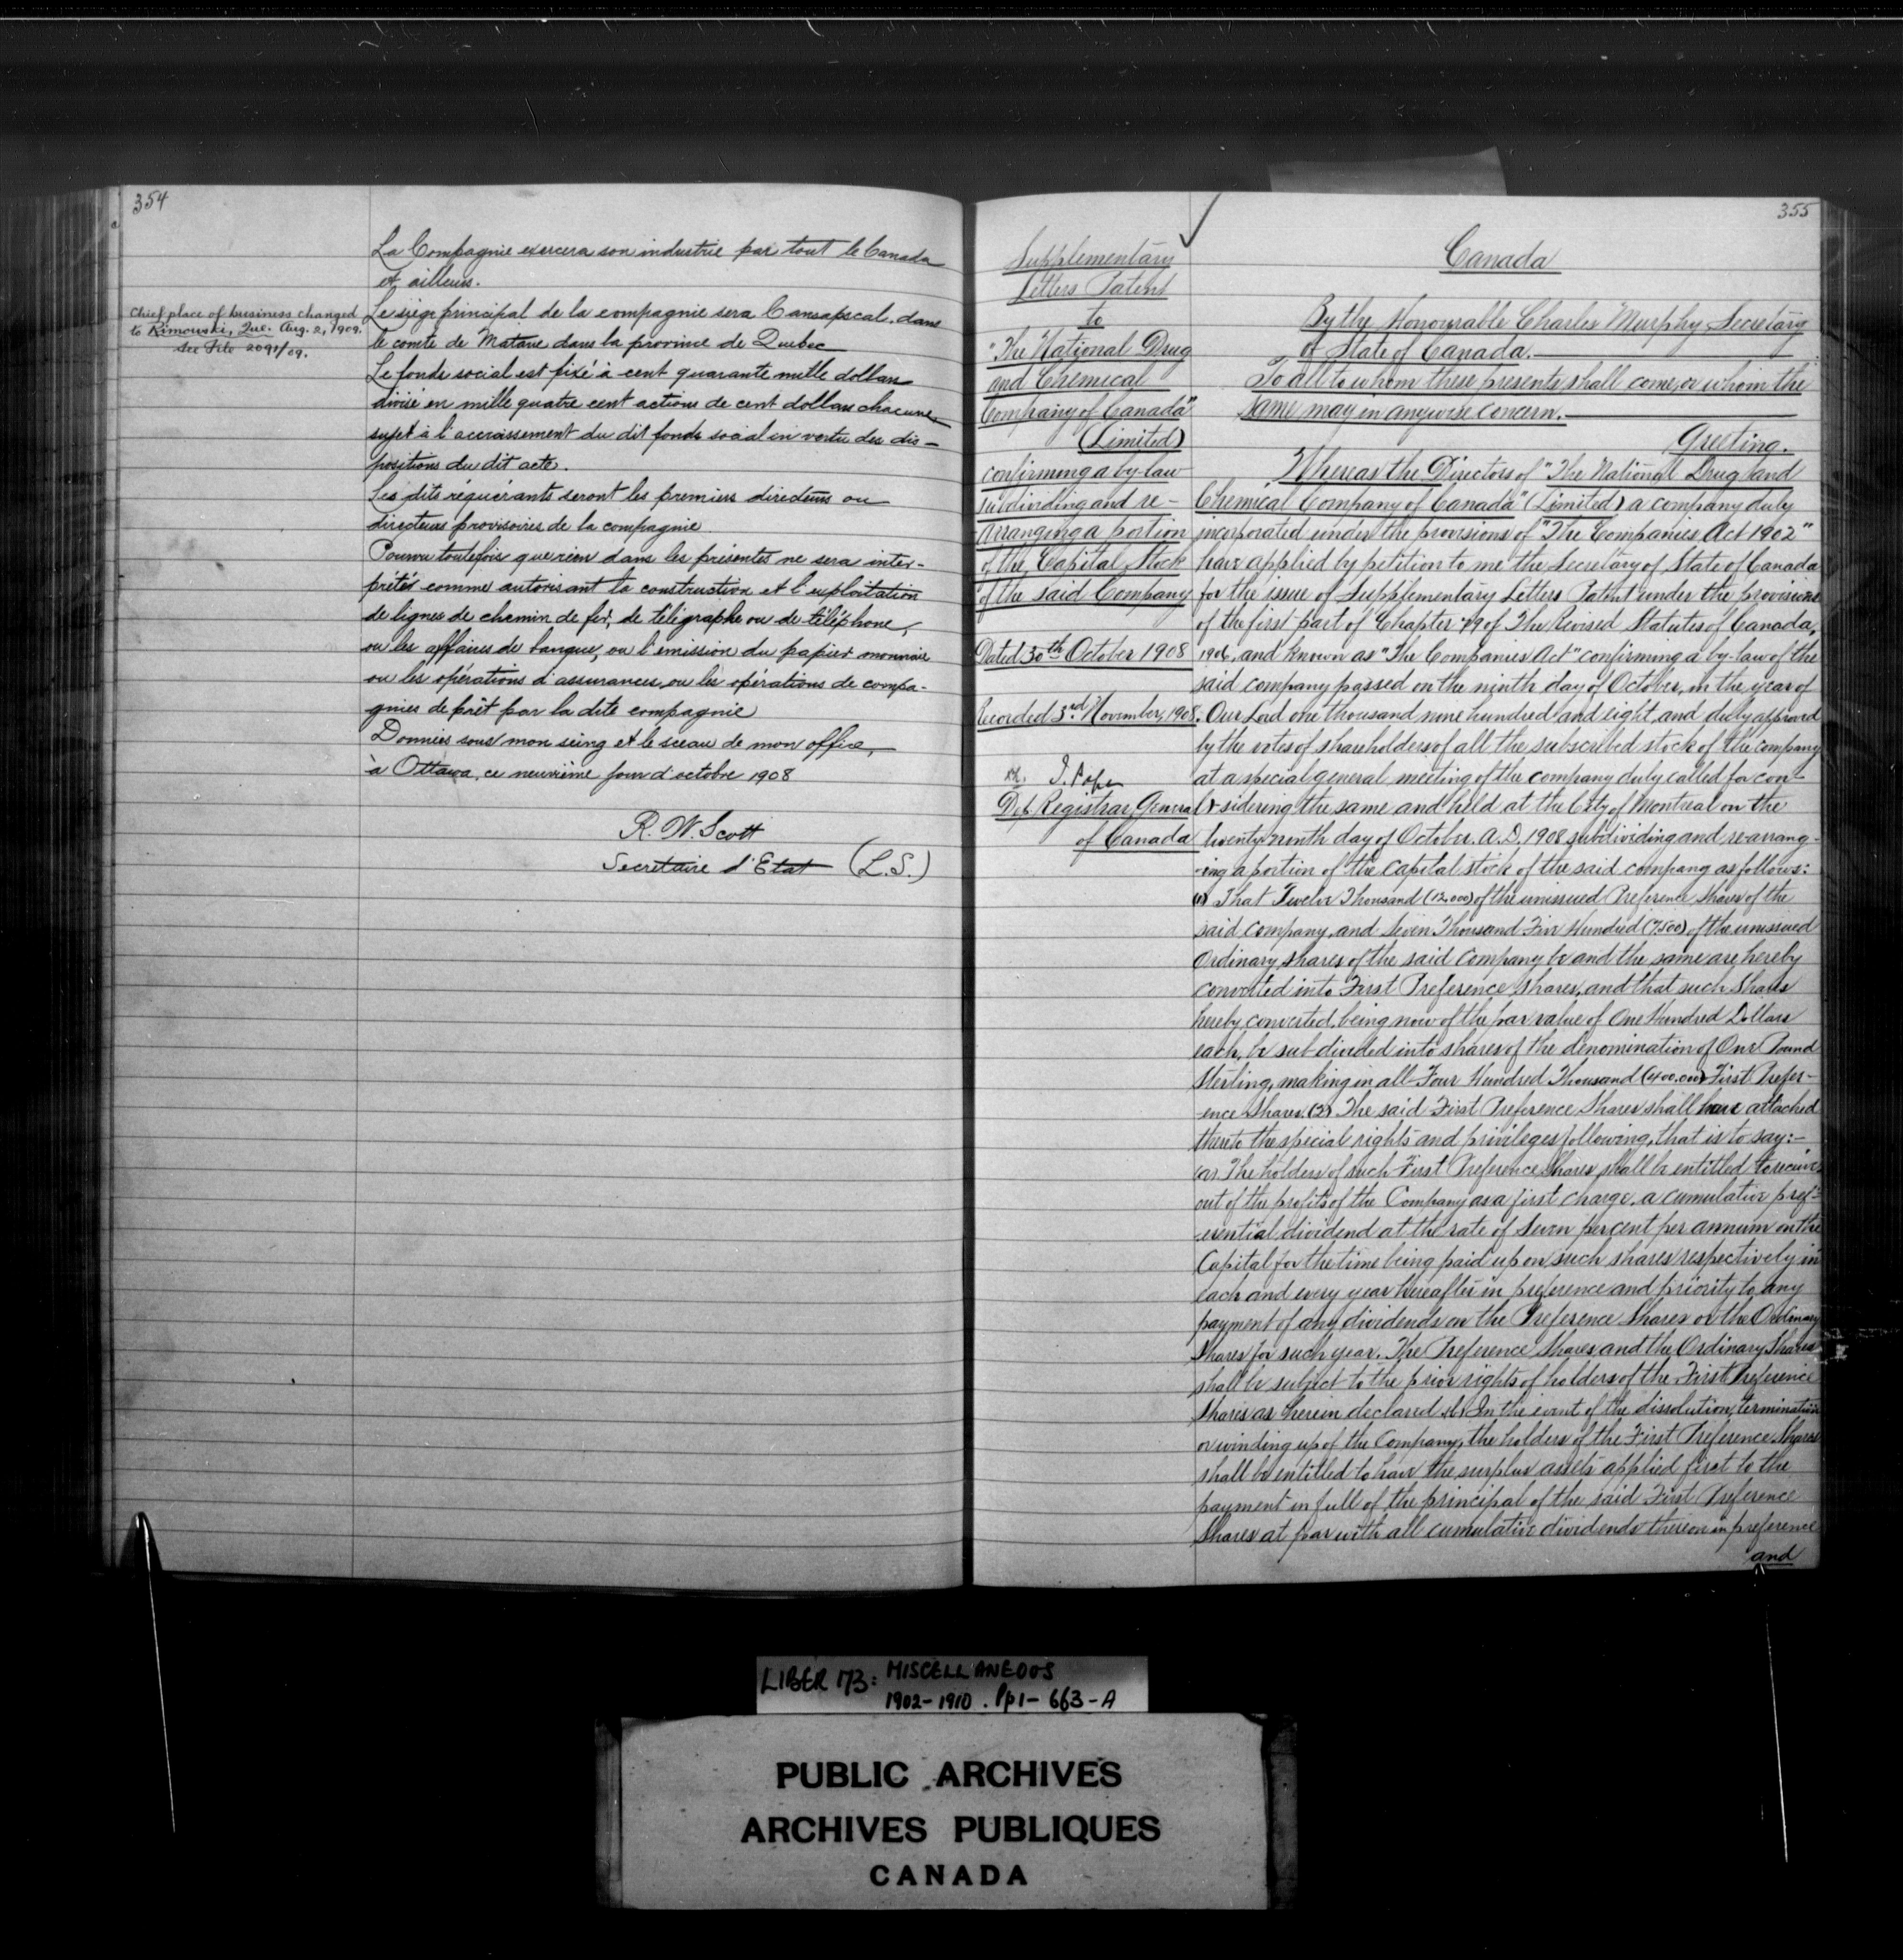 354
La Compagnie exercera son industrie par tout le Canada
et ailleurs.
Chief place of business changed
to Rimouski, Que. Aug. 2, 1909.
See File 2091/09.
Le siège principal de la compagnie sera Causapscal, dans
le comté de Matane dans la province de Quebec
Le fonds social est fixé à cent quarante mille dollars
divisé en mille quatre cent actions de cent dollars chacune,
sujet à l'accroissement du dit fonds social en vertu des dis-
positions du dit acte.
Les dits réquérants seront les premiers directeurs ou
directeurs provisoires de la compagnie
Pourvu toutefois que rien dans les présentes ne sera inter-
prétés comme autorisant la construction et l'exploitation
de lignes de chemin de fer, de télégraphe ou de téléphone,
ou les affaires de banque, ou l'émission du papier monnaie
ou les opérations d'assurances, ou les opérations de compa-
gnies de prêt par la dite compagnie
Données sous mon seing et le sceau de mon office,
à Ottawa, ce neuvième jour d'octobre 1908
R. W. Scott
Secrétaire d'Etat (L.S.)
355
Supplementary
Letters Patent
to
"The National Drug
and Chemical
Company of Canada"
(Limited)
confirming a by-law
subdividing and re-
arranging a portion
of the Capital Stock
of the said Company
Dated 30th October 1908
Recorded 3rd November, 1908.
J. Pope
Dep. Registrar General
of Canada
Canada
By the Honourable Charles Murphy Secretary
of State of Canada.
To all to whom these presents shall come, or whom the
same may in anywise concern.
Greeting.
Whereas the Directors of "The National Drug and
Chemical Company of Canada" (Limited) a company duly
incorporated under the provisions of "The Companies Act 1902"
have applied by petition to me the Secretary of State of Canada
for the issue of Supplementary Letters Patent under the provisions
of the first part of Chapter 79 of The Revised Statutes of Canada,
1906, and known as "The Companies Act" confirming a by-law of the
said company passed on the ninth day of October, in the year of
Our Lord one thousand nine hundred and eight, and duly approved
by the votes of shareholders of all the subscribed stock of the company
at a special general meeting of the company duly called for con-
sidering the same and held at the City of Montreal on the
twenty-ninth day of October. A. D. 1908 subdividing and re-arrang-
-ing a portion of the capital stock of the said company as follows:
(1) That Twelve Thousand (12,000) of the unissued Preference Shares of the
said company, and Seven Thousand Five Hundred (7,500) of the unissued
Ordinary shares of the said Company be and the same are hereby
converted into First Preference shares, and that such Shares
hereby converted, being now of the par value of One Hundred Dollars
each, be sub-divided into shares of the denomination of One Pound
Sterling, making in all Four Hundred Thousand (400,000) First Prefer-
-ence Shares. (2) The said First Preference Shares shall have attached
thereto the special rights and privileges following, that is to say:-
(a) The holders of such First Preference Shares shall be entitled to receive
out of the profits of the Company as a first charge, a cumulative pref-
-erential dividend at the rate of Seven per cent per annum on the
Capital for the time being paid up on such shares respectively in
each and every year thereafter in preference and priority to any
payment of any dividends on the Preference Shares or the Ordinary
Shares for such year. The Preference Shares and the Ordinary Shares
shall be subject to the prior rights of holders of the First Preference
Shares as herein declared. (b) In the event of the dissolution, termination
or winding up of the Company, the holders of the First Preference Shares
shall be entitled to have the surplus assets applied first to the
payment in full of the principal of the said First Preference
Shares at par with all cumulative dividends thereon in preference
and
LIBER 173: MISCELLANEOUS
1902-1910. Pp1-663-A
PUBLIC ARCHIVES
ARCHIVES PUBLIQUES
CANADA